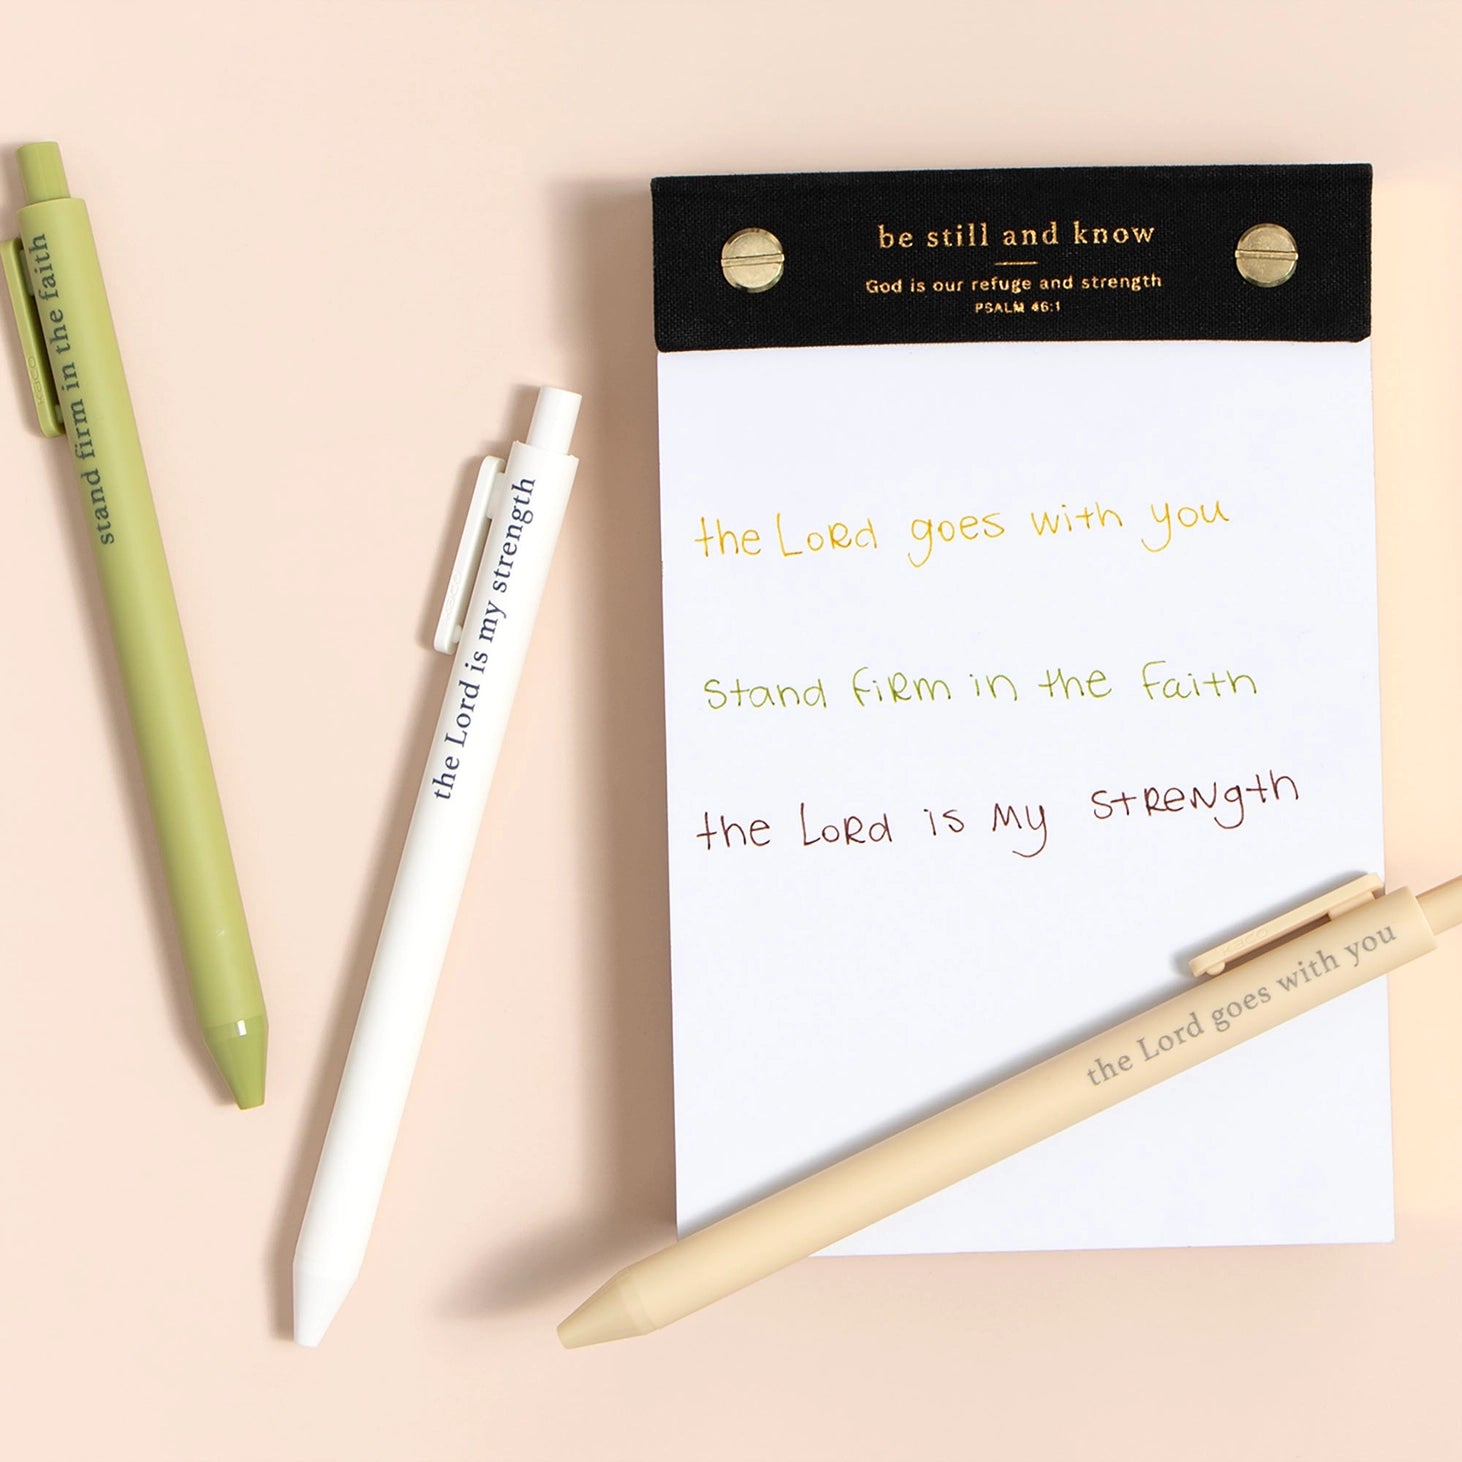 be still and know
God is our refuge and strength
PSALM 46:1
the Lord goes with you
stand firm in the faith
the Lord is my strength
stand firm in the faith
kaco
the Lord is my strength
kaco
the Lord goes with you
kaco